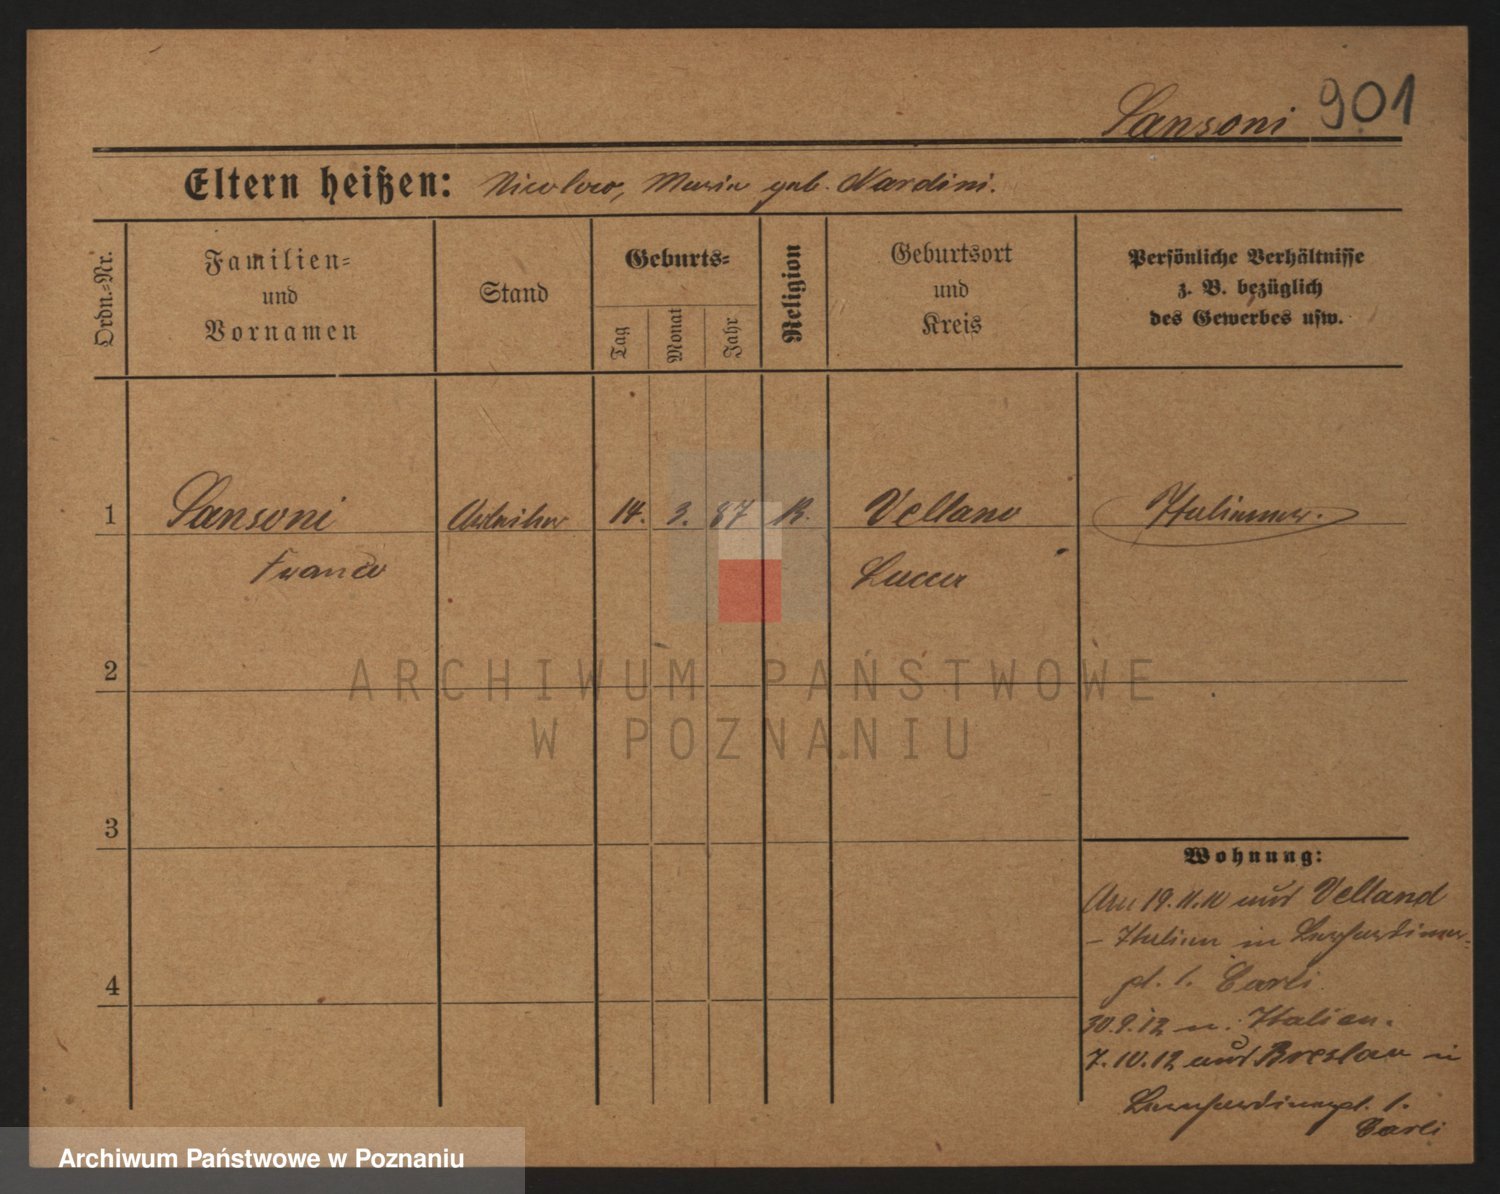 Sansoni 901
Eltern heißen: Nicolao, Maria geb. Nardini.
Ordn.-Nr.
Familien-
und
Vornamen
Stand
Geburts-
Tag
Monat
Jahr
Religion
Geburtsort
und
Kreis
Persönliche Verhältnisse
z. B. bezüglich
des Gewerbes usw.
1 Sansoni Arbeiter 14. 3. 87 K. Vellano Italiener.
Franco Lucca
2
ARCHIWUM PAŃSTWOWE
W POZNANIU
3
Wohnung:
Am 19.11.10 aus Velland
- Italien in Bernhardiner-
4
pl. 1. Carli.
30.9.12 n. Italien.
7.10.12 aus Breslau in
Bernhardinerpl. 1.
Carli
Archiwum Państwowe w Poznaniu